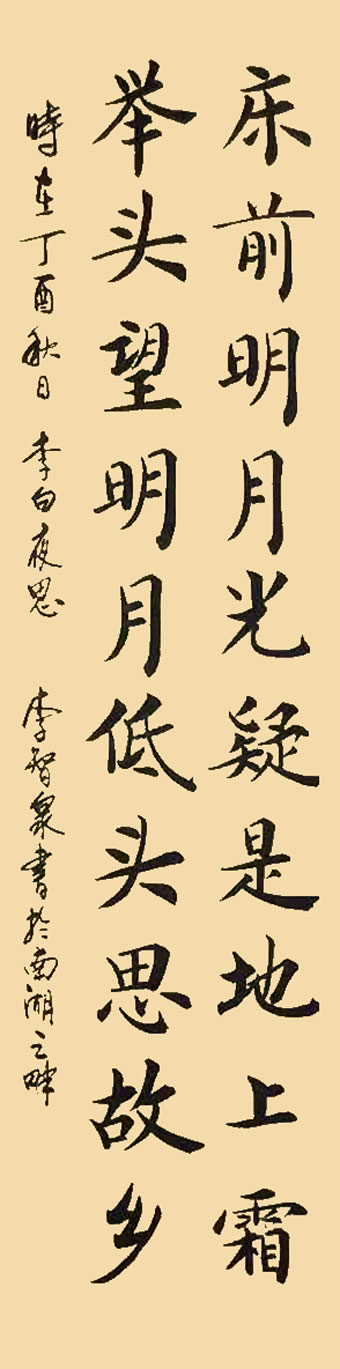 床前明月光疑是地上霜
举头望明月低头思故乡
时在丁酉秋日 李白夜思 李智泉書於南湖之畔